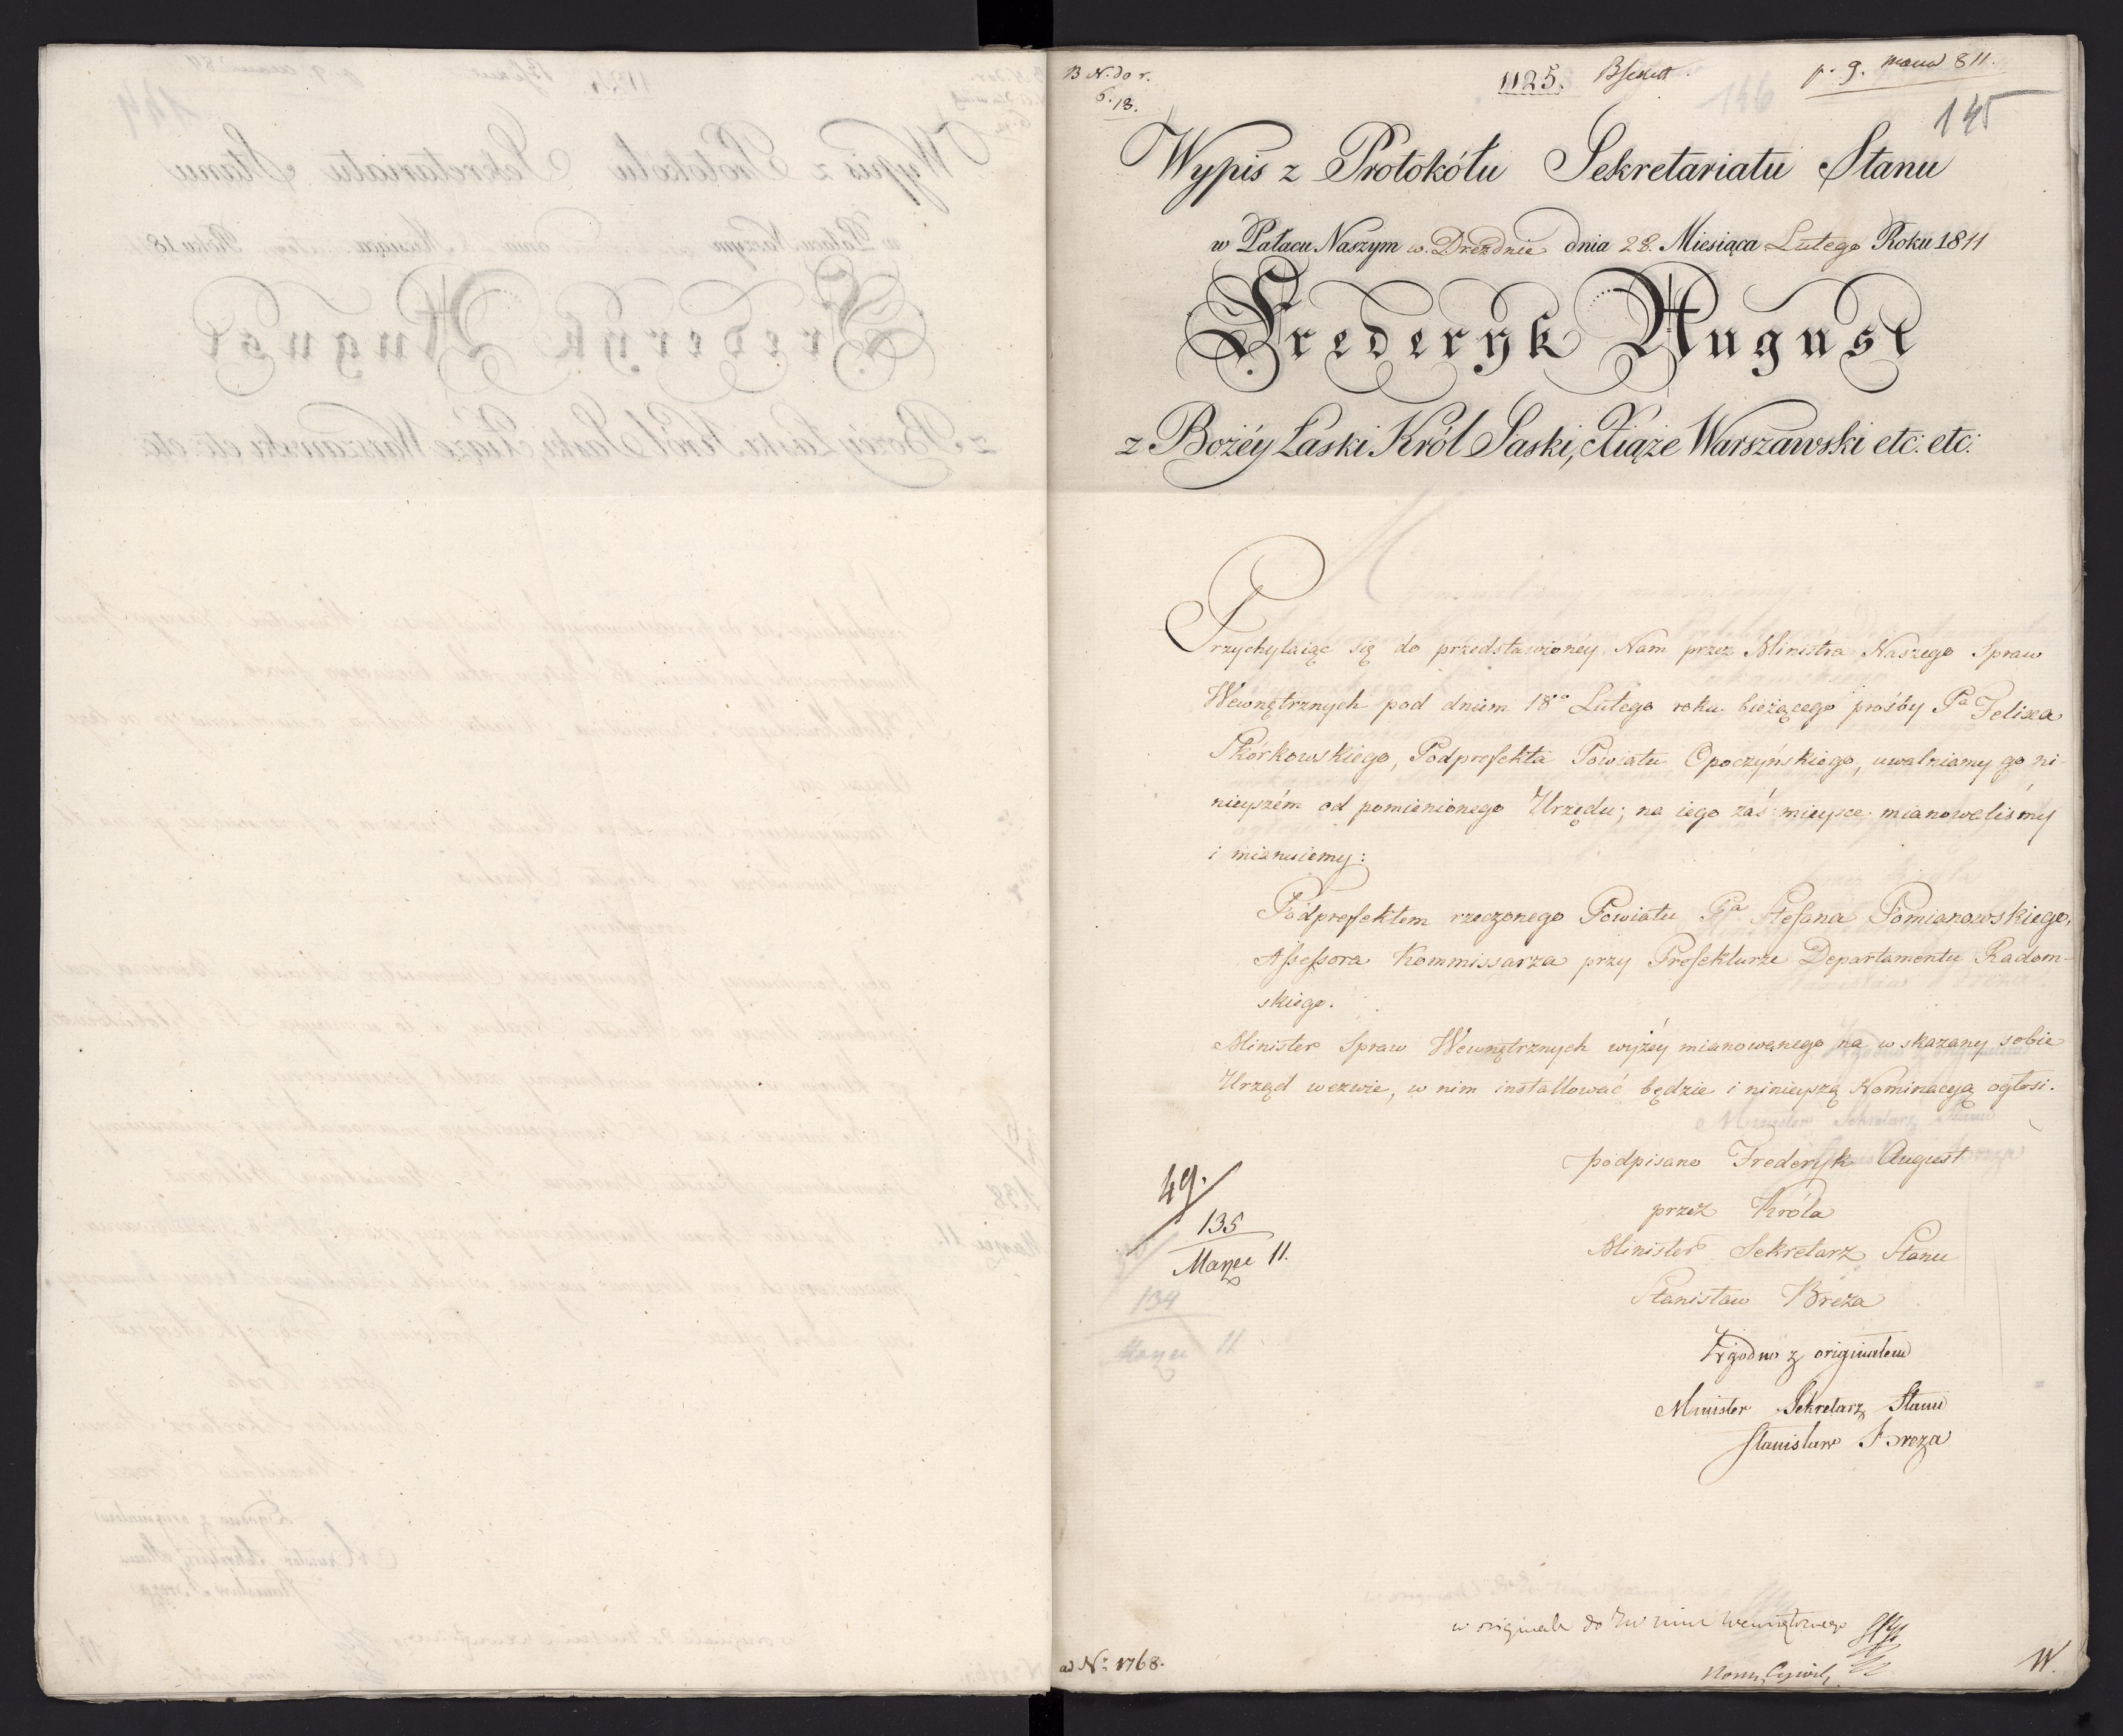 B N. do r.
6. 13.
1125.
p. 9. marca 811.
145
Wypis z Protokółu Sekretariatu Stanu
w Pałacu Naszym w Dreźdnie dnia 28. Miesiąca Lutego Roku 1811
Frederyk August
z Bożéy Łaski Król Saski, Xiąże Warszawski etc: etc:
Przychylaiąc się do przedstawionéy Nam przez Ministra Naszego Spraw
Wewnętrznych pod dniem 18º Lutego roku bieżącego prośby Pª Felixa
Skórkowskiego, Podprefekta Powiatu Opoczyńskiego, uwalniamy go ni-
nieyszém od pomienionego Urzędu; na iego zaś mieysce mianowaliśmy
i mianuiemy:
Podprefektem rzeczonego Powiatu Pª Stefana Pomianowskiego,
Assessora Kommissarza przy Prefekturze Departamentu Radom-
skiego.
Minister Spraw Wewnętrznych wyżéy mianowanego na wskazany sobie
Urząd wezwie, w nim installować będzie i ninieyszą Nominacyą ogłosi.
podpisano Frederyk August
przez Króla
Minister Sekretarz Stanu
Stanisław Breza
Zgodno z originałem
Minister Sekretarz Stanu
Stanisław Breza
49.
135
Marzec 11.
134
Marzec 11
w originale do Wewnętrznego
Nom. Cywil.
ad Nº 1768.
W.